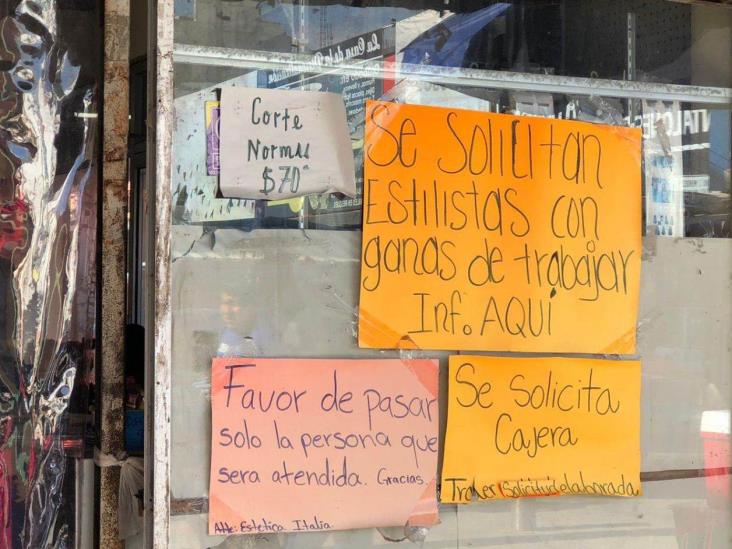 La Casa de la
Corte
Normal
$70
Se Solicitan
Estilistas con
ganas de trabajar
Inf. AQUÍ
Favor de pasar
solo la persona que
sera atendida. Gracias.
Atte: Estetica Italia
Se solicita
Cajera
Traer Solicitud elaborada